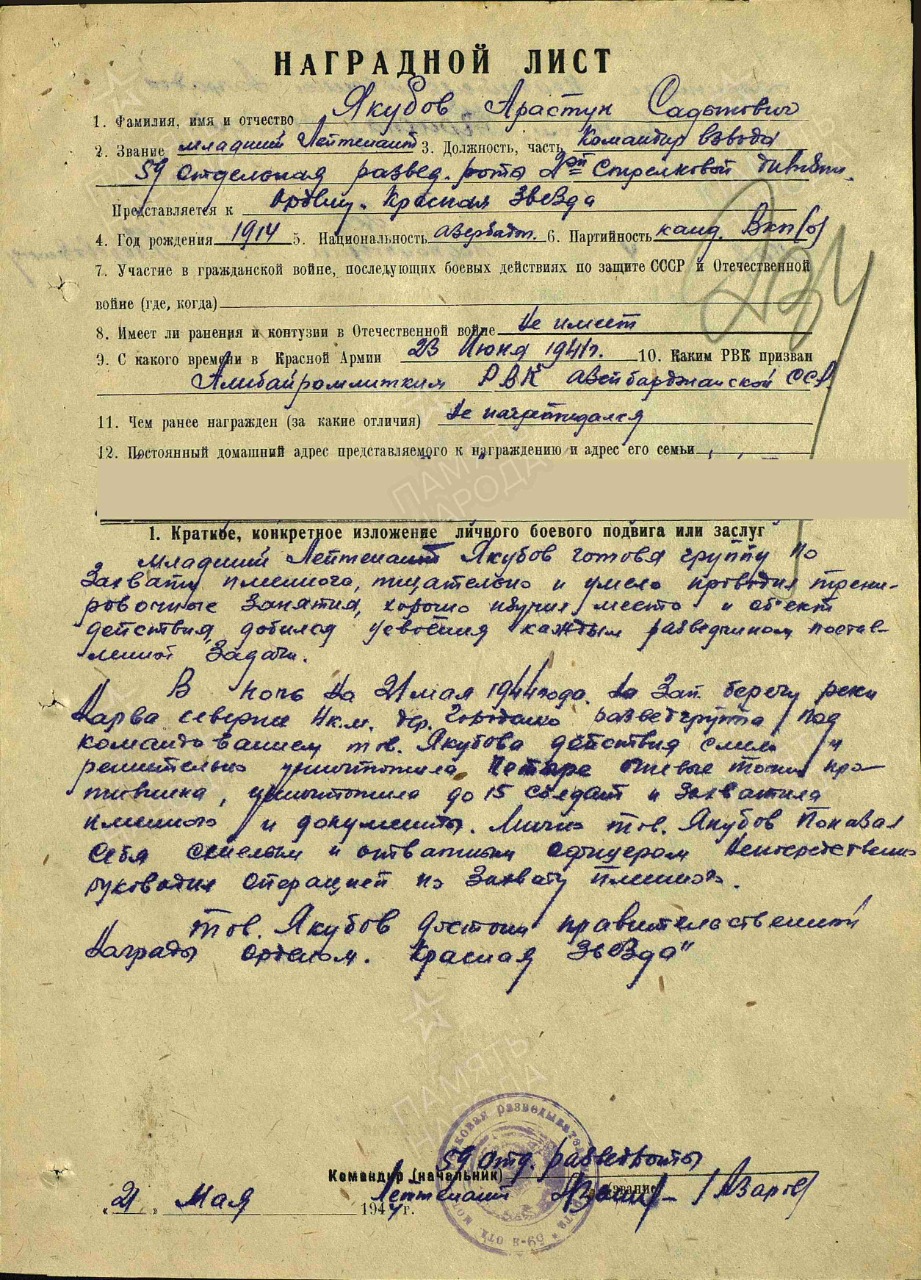 НАГРАДНОЙ ЛИСТ
1. Фамилия, имя и отчество Якубов Арастун Садыкович
2. Звание младший Лейтенант 3. Должность, часть Командир взвода
59 отдельная развед. рота 2ой Стрелковой дивизии.
Представляется к Ордену. Красная Звезда
4. Год рождения 1914 5. Национальность азербайдж. 6. Партийность канд. ВКП(б)
7. Участие в гражданской войне, последующих боевых действиях по защите СССР и Отечественной
войне (где, когда)
8. Имеет ли ранения и контузии в Отечественной войне Не имеет
9. С какого времени в Красной Армии 23 Июня 1941г. 10. Каким РВК призван
РВК Азейбарджанской ССР.
11. Чем ранее награжден (за какие отличия) Не награждался
12. Постоянный домашний адрес представляемого к награждению и адрес его семьи
234
1. Краткое, конкретное изложение личного боевого подвига или заслуг
младший Лейтенант Якубов готовя группу по
Захвату пленного, тщательно и умело проводил трени-
ровочные Занятия, хорошо изучил место и объект
действия, добился усвоения каждым разведчиком постав-
ленной Задачи.
В ночь на 21 мая 1944 года. на Зап. берегу реки
Нарва севернее 4 км. дер. разведгруппа под
командованием тов. Якубова действуя смело и
решительно уничтожила Четыре огневые точки про-
тивника, уничтожила до 15 солдат и Захватила
пленного и документы. Лично тов. Якубов Показал
Себя смелым и отважным Офицером Непосредственно
руководил Операцией по Захвату Пленного.
тов. Якубов достоин правительственной
Награды Орденом. Красная Звезда"
59 отд. разведроты
Командир (начальник)
Лейтенант /Азаров/
"21" Мая 1944 г.
ПАМЯТЬ НАРОДА